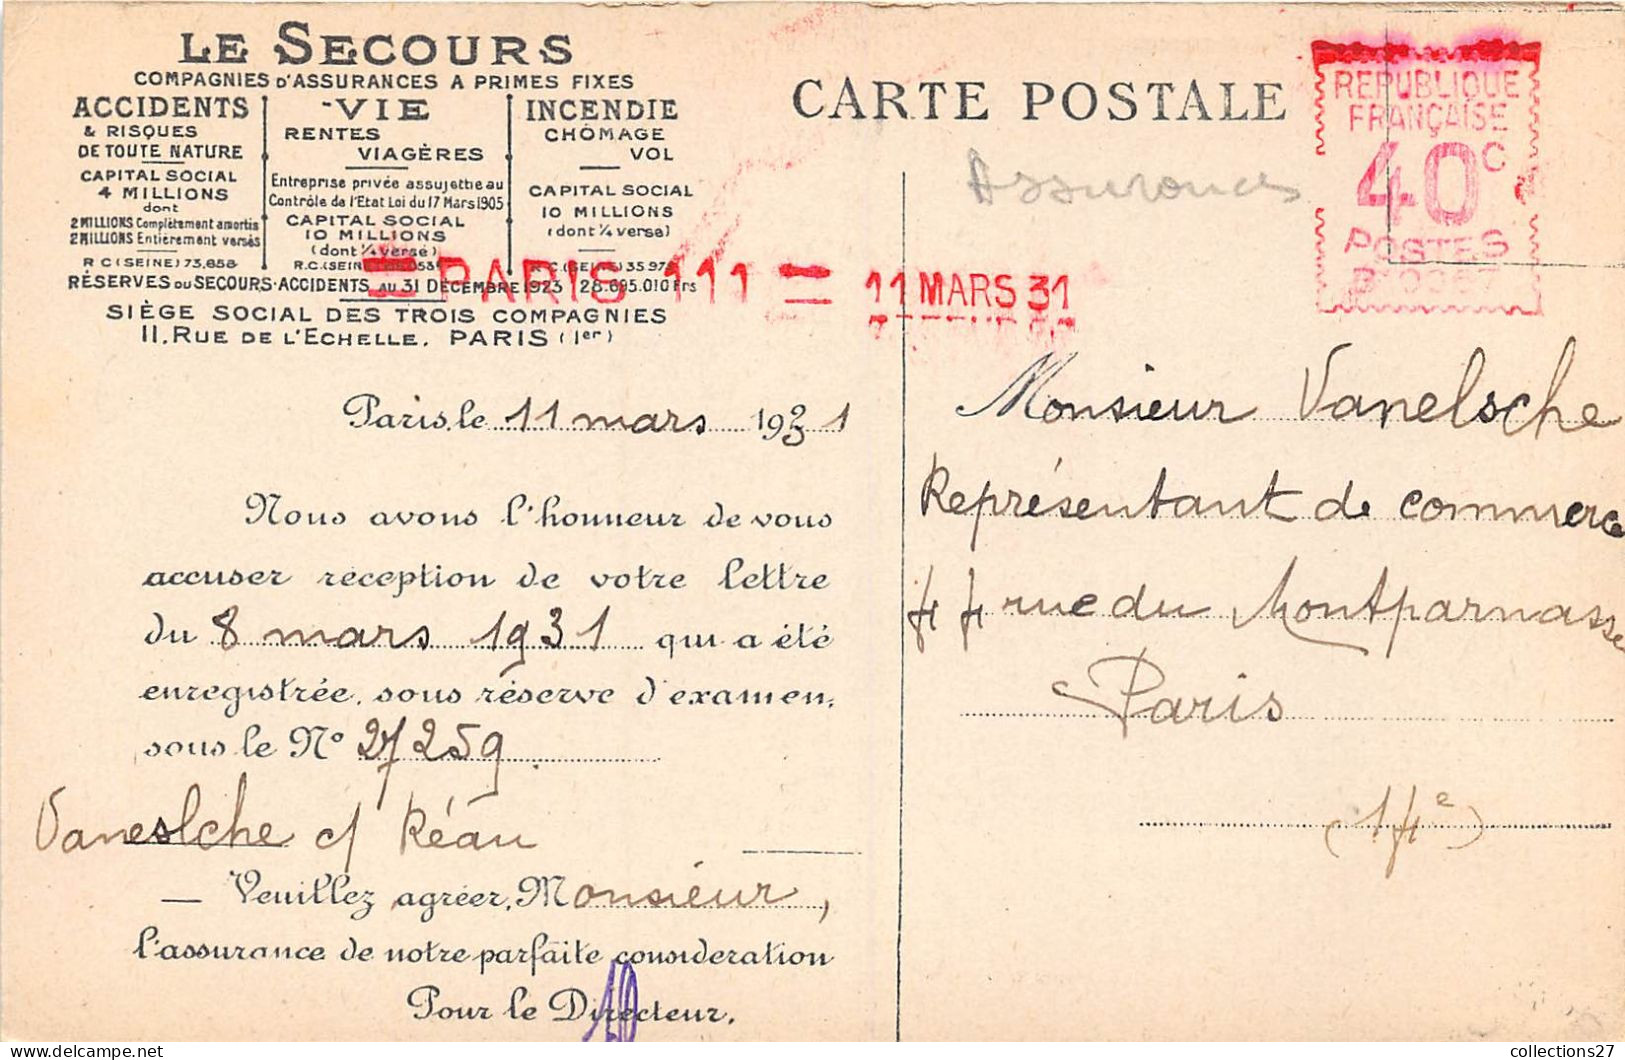 LE SECOURS
COMPAGNIES D'ASSURANCES A PRIMES FIXES
ACCIDENTS
& RISQUES
DE TOUTE NATURE
CAPITAL SOCIAL
4 MILLIONS
dont
2 MILLIONS Complètement amortis
2 MILLIONS Entièrement versés
R C (SEINE) 73,658
VIE
RENTES
VIAGÈRES
Entreprise privée assujettie au
Contrôle de l'Etat Loi du 17 Mars 1905
CAPITAL SOCIAL
10 MILLIONS
(dont ¼ versé)
R.C. (SEINE)
INCENDIE
CHÔMAGE
VOL
CAPITAL SOCIAL
10 MILLIONS
(dont ¼ versé)
R C (SEINE) 35.97
RÉSERVES DU SECOURS-ACCIDENTS AU 31 DÉCEMBRE 1923 28.695.010 Frs
SIÈGE SOCIAL DES TROIS COMPAGNIES
11, RUE DE L'ECHELLE, PARIS (1er)
= PARIS 111 = 11 MARS 31
CARTE POSTALE
Assurances
REPUBLIQUE
FRANÇAISE
40 C
POSTES
Paris, le 11 mars 1931
Nous avons l'honneur de vous
accuser réception de votre lettre
du 8 mars 1931 qui a été
enregistrée, sous réserve d'examen,
sous le N° 27259
Vaneslche c/ Réau
— Veuillez agréer, Monsieur,
l'assurance de notre parfaite considération
Pour le Directeur.
Monsieur Vanelsche
Représentant de commerce
44 rue du Montparnasse
Paris
(14e)
collections27